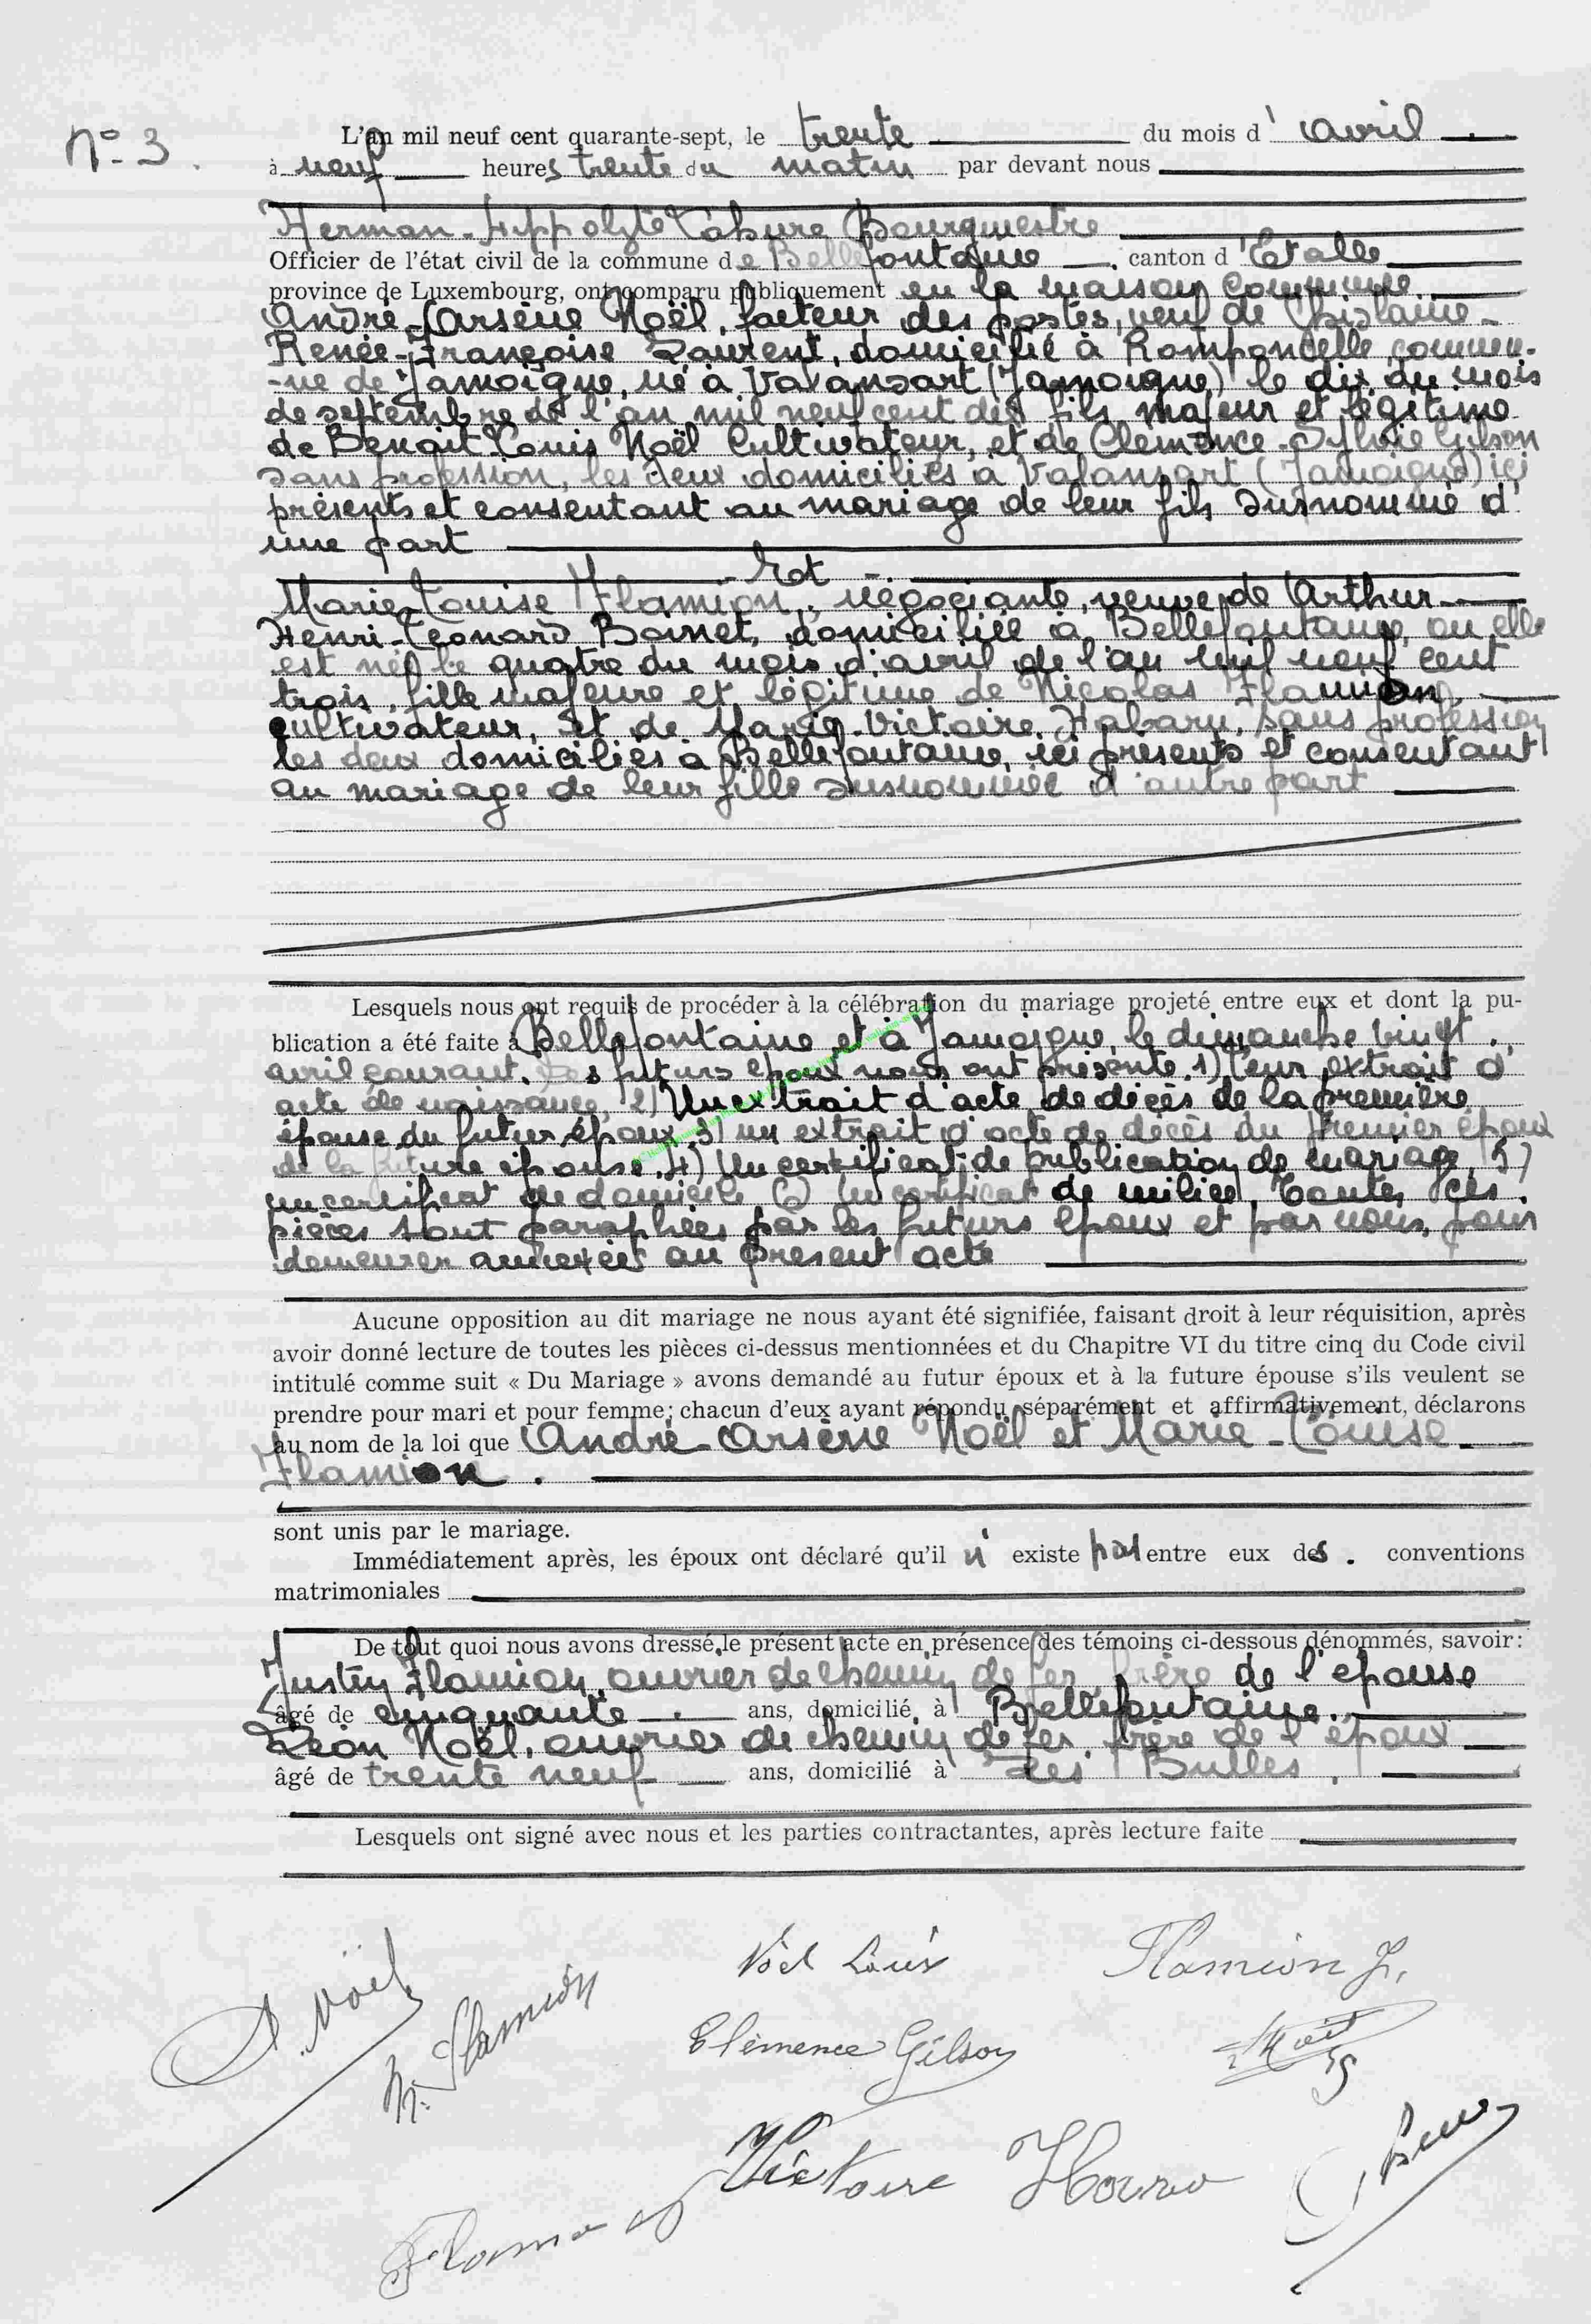 n° 3.
L'an mil neuf cent quarante-sept, le trente du mois d'avril
à neuf heures trente du matin par devant nous
Herman-Hippolyte Bourgmestre
Officier de l'état civil de la commune de Bellefontaine, canton d'Etalle
province de Luxembourg, ont comparu publiquement en la maison commune
André-Arsène Noël, facteur des postes, veuf de Ghislaine-
Renée-Françoise Laurent, domicilié à Romponcelle commu-
-ne de Jamoigne, né à Valansart (Jamoigne) le dix du mois
de septembre de l'an mil neuf cent dix fils majeur et légitime
de Benoit Louis Noël Cultivateur, et de Clémence-Sylvie Gilson
sans profession, les deux domiciliés à Valansart (Jamoigne) ici
présents et consentant au mariage de leur fils susnommé d'
une part
- Et -
Marie-Louise Flamion, négociante, veuve de Arthur-
Henri-Léonard Boinet, domiciliée à Bellefontaine, ou elle
est née le quatre du mois d'avril de l'an mil neuf cent
trois, fille majeure et légitime de Nicolas Flamion,
cultivateur, et de Marie-Victoire, sans profession
les deux domiciliés à Bellefontaine, ici présents et consentant
au mariage de leur fille susnommée d'autre part
Lesquels nous ont requis de procéder à la célébration du mariage projeté entre eux et dont la pu-
blication a été faite à Bellefontaine et à Jamoigne, le dimanche vingt
avril courant. Les futurs époux nous ont présenté. 1) leur extrait d'
acte de naissance, 2) Un extrait d'acte de décès de la première
épouse du futur époux, 3) un extrait d'acte de décès du premier époux
de la future épouse, 4) Un certificat de publication de mariage, 5)
un certificat de domicile 6) Un certificat de milice. Toutes ces
pièces sont paraphées par les futurs époux et par nous, pour
demeurer annexées au présent acte
Aucune opposition au dit mariage ne nous ayant été signifiée, faisant droit à leur réquisition, après
avoir donné lecture de toutes les pièces ci-dessus mentionnées et du Chapitre VI du titre cinq du Code civil
intitulé comme suit « Du Mariage » avons demandé au futur époux et à la future épouse s'ils veulent se
prendre pour mari et pour femme; chacun d'eux ayant répondu séparément et affirmativement, déclarons
au nom de la loi que André-Arsène Noël et Marie-Louise
Flamion.
sont unis par le mariage.
Immédiatement après, les époux ont déclaré qu'il n'existe pas entre eux des conventions
matrimoniales
De tout quoi nous avons dressé le présent acte en présence des témoins ci-dessous dénommés, savoir:
Justin Flamion, ouvrier de chemin de fer, frère de l'épouse
âgé de cinquante ans, domicilié à Bellefontaine.
Léon Noël, ouvrier de chemin de fer, frère de l'époux
âgé de trente neuf ans, domicilié à Les Bulles.
Lesquels ont signé avec nous et les parties contractantes, après lecture faite
A. Noël
M. Flamion
Noël Louis
Flamion J.
Clémence Gilson
Victoire
Flamion